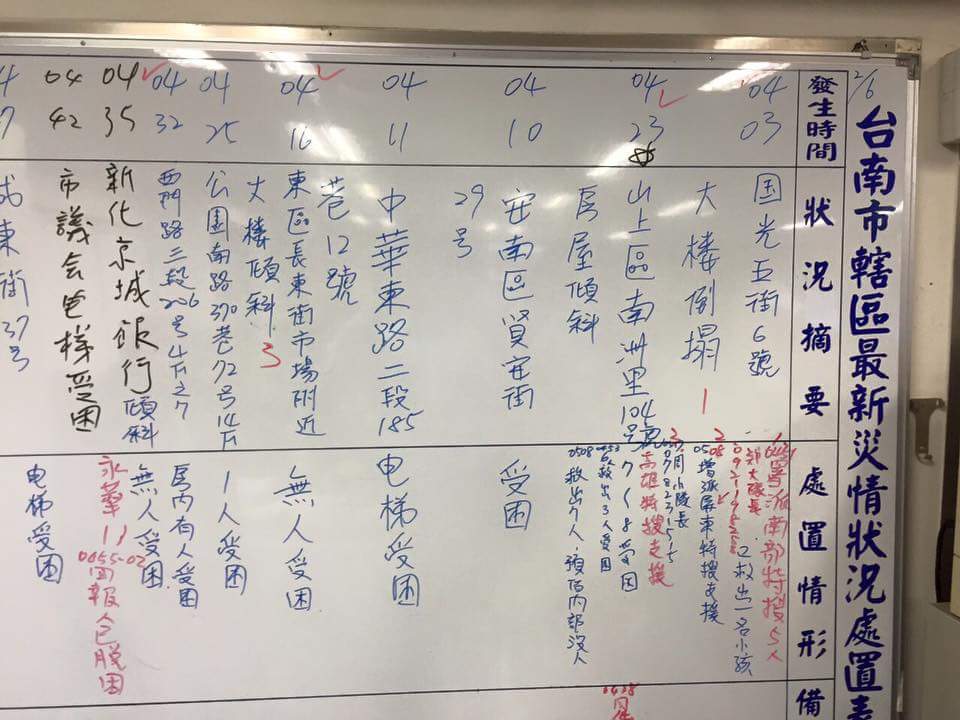 台南市轄區最新災情狀況處置表
2/6
發生時間
狀況摘要
處置情形
備
04
03
国光五街6號
大樓倒塌 1
寮派南部特搜5人
鄭大隊長
已救出一名小孩
增派屏東特搜支援
04
23
山上區南洲里104號
房屋傾斜
周小隊長
高雄特搜支援
7人受困
救出3人受困
0508
救出7人,預估內部沒人
04
10
安南區賢安街
29号
受困
04
11
中華東路二段185
巷12號
电梯受困
04
16
東區長東街市場附近
大樓傾斜 3
無人受困
04
25
公園南路370巷72号14F
1人受困
04
32
西門路三段206号4F之7
屋內有人受困
無人受困
04
35
新化京城銀行傾斜
永華11
0455-02
回報人已脫困
04
42
市議会电梯受困
电梯受困
東街37号
0438